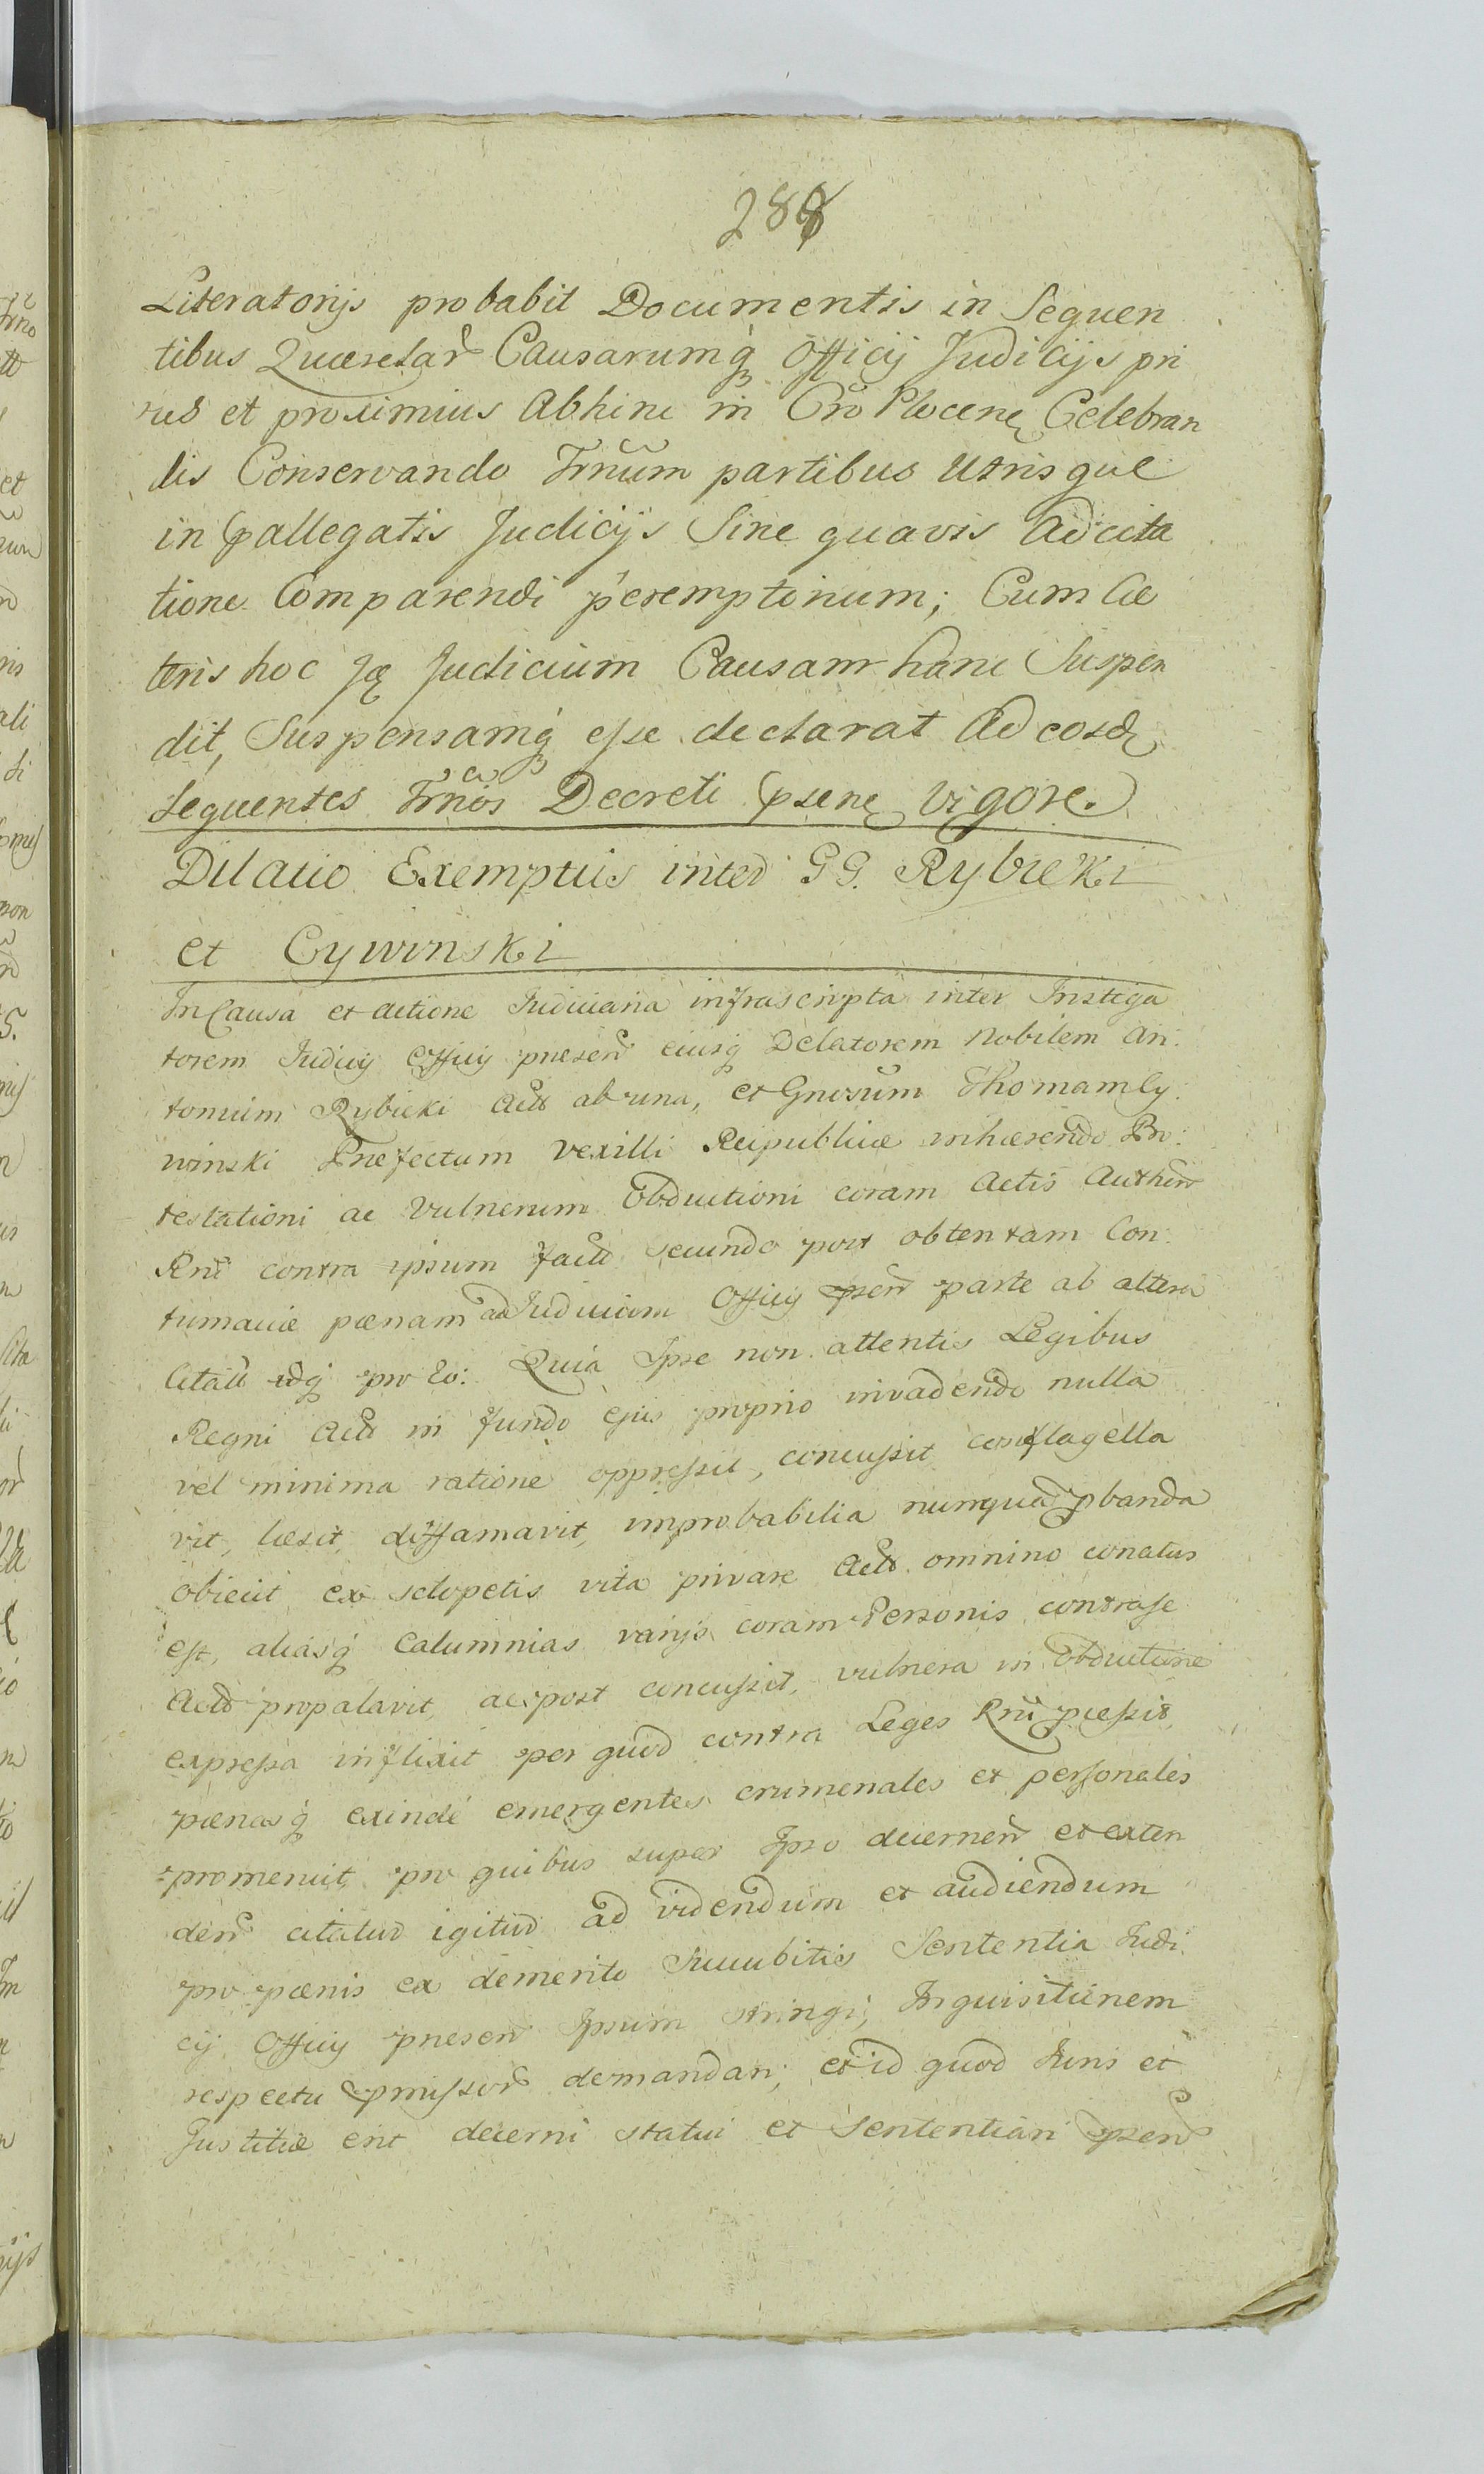 288
Literatorijs probabit Documentis in Sequen
tibus Querelar Causarumq̃ Officij Judicijs pri
us et proximius Abhinc in Cro Plocen Celebran
dis Conservando Trnum partibus Utrisque
in pallegatis Judicijs Sine quavis Adcita
tione Comparendi peremptorium; Cum Cæ
teris hoc Judicium Causam hanc Suspen
dit, Suspensamq̃ esse declarat Ad eosd
Sequentes Trnos Decreti psene Vigore
Dilatio Exemptus inter GG. Rybicki
et Cywinski
In Causa et actione Judiciaria infrascripta inter Instiga
torem Judicij Officij presen eiusq̃ Delatorem Nobilem An:
tonium Rybicki Act ab una, et Gnosum Thomam Cy:
winski Præfectum Vexilli Reipublicæ inhærendo Pro:
testationi ac Vulnerum Obductioni coram Actis Authen
Rni contra ipsum fact secundo post obtentam Con:
tumaciæ pænam ad Judicium Officij psen parte ab altera
Citatt idq̃ pro Eo: Quia Ipse non attentis Legibus
Regni Act in fundo Ejus proprio invadendo nulla
vel minima ratione oppressit, concussit conflagella
vit, læsit, diffamavit, improbabilia nunquã pbanda
obiecit ex sclopetis vita privare Act omnino conatus
est, aliasq̃ Calumnias varijs coram Personis contra se
Act propalavit, ac post concussit, vulnera in Obductione
expressa inflixit per quod contra Leges Rni pcessit,
pænasq̃ exinde emergentes crimenales et personales
promeruit, pro quibus super Ipso decernen et exten
den citatur igitur ad videndum et audiendum
pro pænis ex demerito Succubitis Sententia Judi
cij Officij presen Ipsum stringi, Inquisitionem
respectu pmissor demandari, et id quod Juris et
Justitiæ erit decerni statui et Sententiari psen